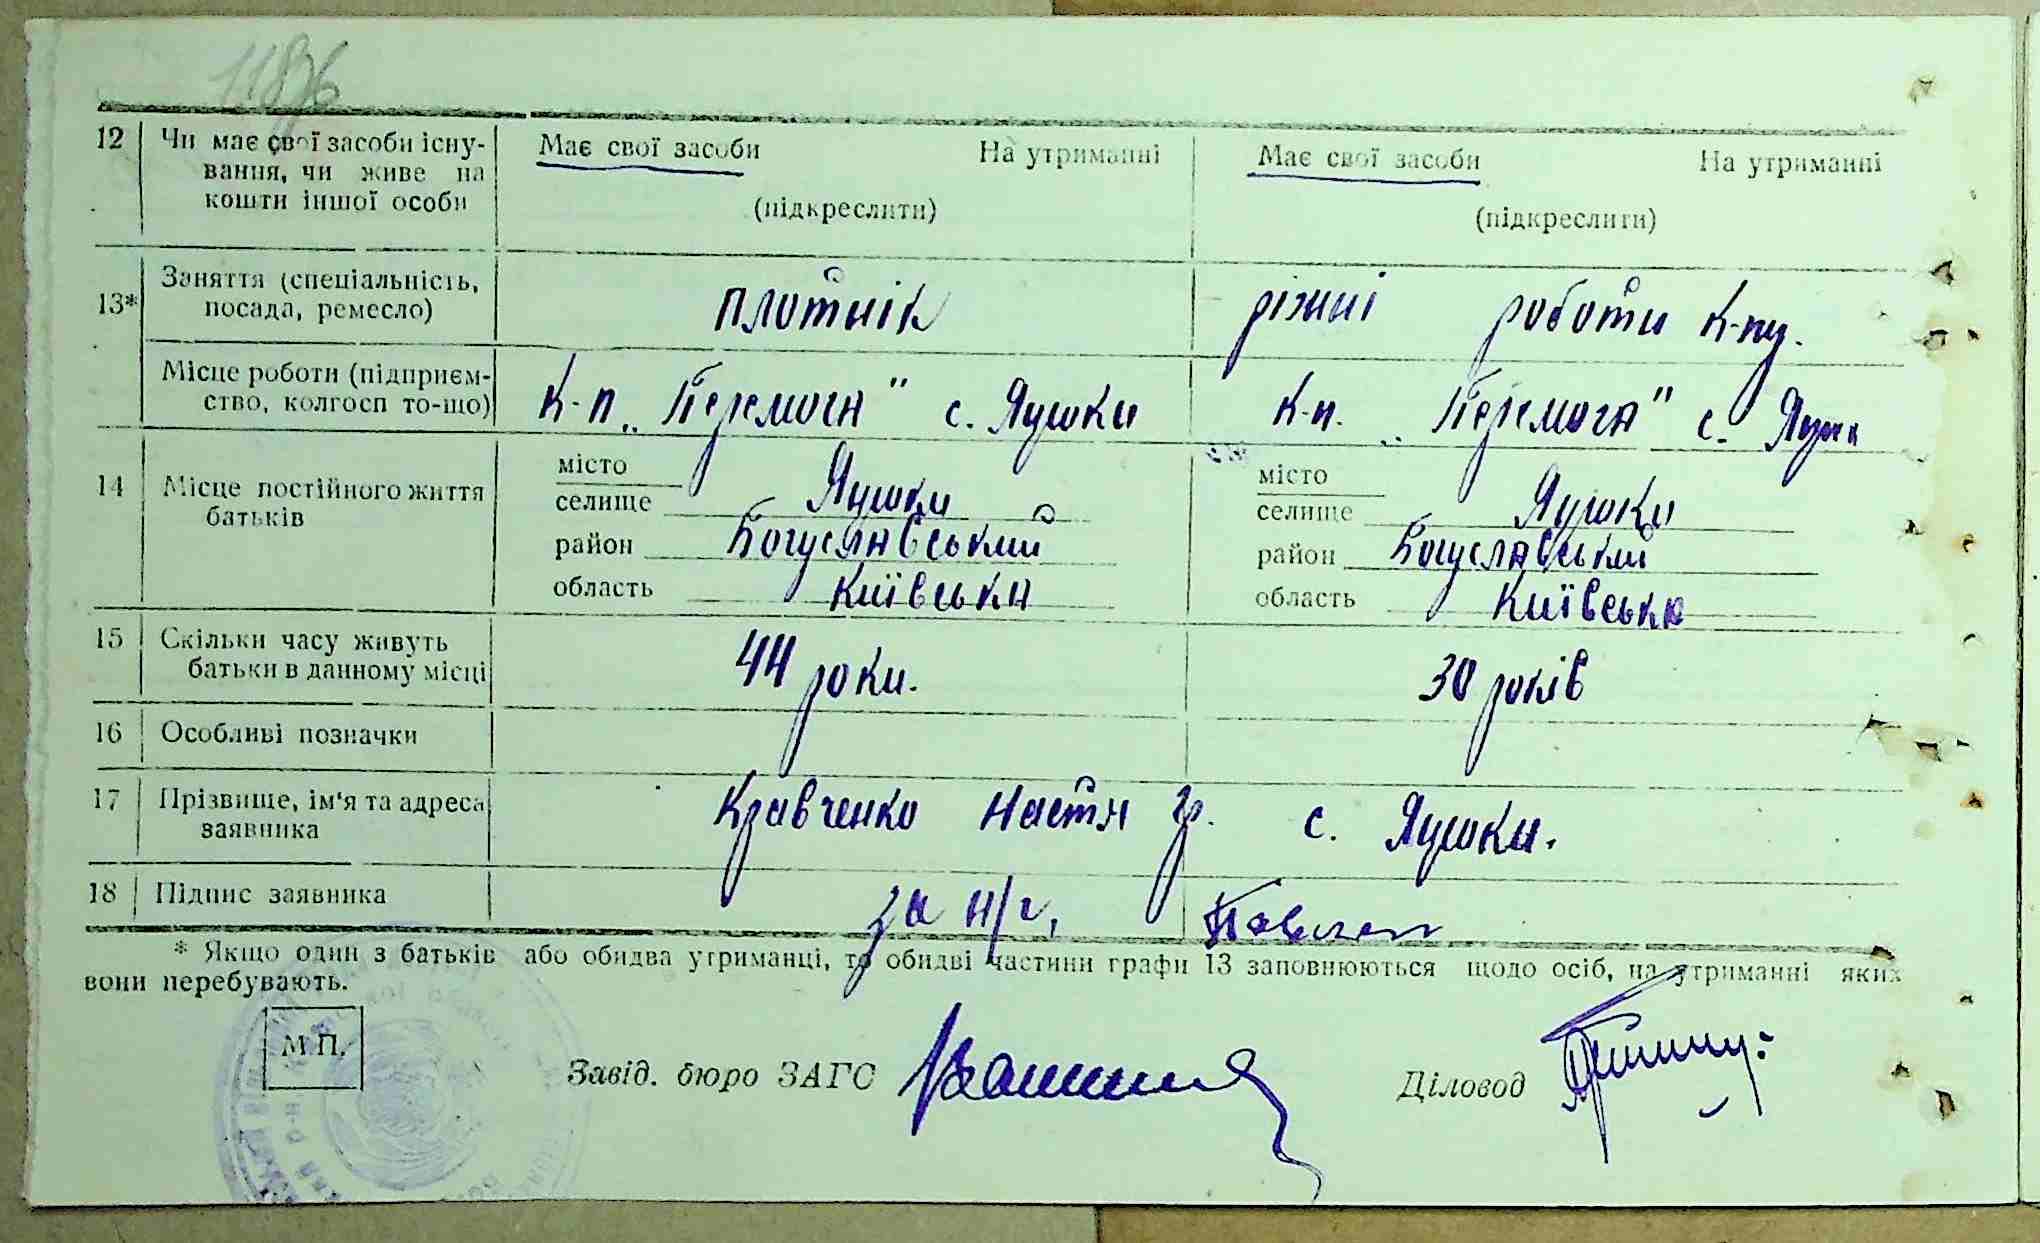 1186
12 Чи має свої засоби існу- Має свої засоби На утриманні Має свої засоби На утриманні
вання, чи живе на
кошти іншої особи (підкреслити) (підкреслити)
13* Заняття (спеціальність, плотнік ріжні роботи к-пу.
посада, ремесло)
Місце роботи (підприєм- К-п „Перемога" с. Яцюки к-п. „Перемога"
ство, колгосп то-що)
14 Місце постійного життя місто місто
батьків селище Яцюки селище Яцюки
район Богуславський район Богуславський
область Київська область Київська
15 Скільки часу живуть 44 роки. 30 років
батьки в данному місці
16 Особливі позначки
17 Прізвище, ім'я та адреса Кравченко Настя Гр. с. Яцюки.
заявника
18 Підпис заявника за н/г,
* Якщо один з батьків або обидва утриманці, то обидві частини графи 13 заповнюються щодо осіб, на утриманні яких
вони перебувають.
М.П.
Завід. бюро ЗАГС Діловод